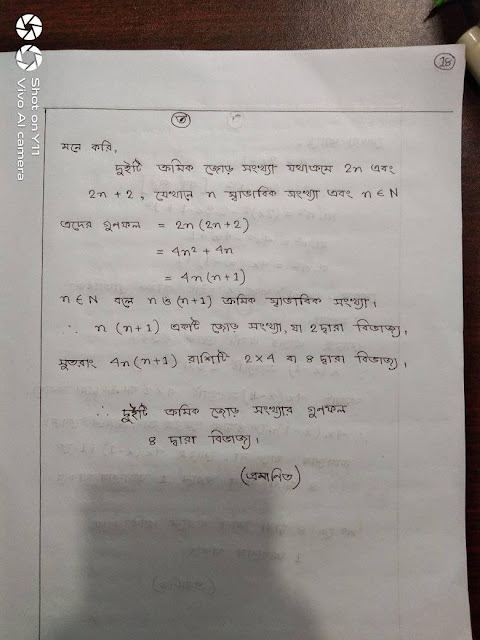 Shot on Y11
Vivo AI camera
18
মনে করি,
দুইটি ক্রমিক জোড় সংখ্যা যথাক্রমে 2n এবং
2n + 2, যেখানে n স্বাভাবিক সংখ্যা এবং n ∈ N
এদের গুনফল = 2n (2n+2)
= 4n² + 4n
= 4n (n+1)
n ∈ N বলে n ও (n+1) ক্রমিক স্বাভাবিক সংখ্যা।
∴ n (n+1) একটি জোড় সংখ্যা, যা 2 দ্বারা বিভাজ্য,
সুতরাং 4n (n+1) রাশিটি 2×4 বা 8 দ্বারা বিভাজ্য,
∴ দুইটি ক্রমিক জোড় সংখ্যার গুনফল
8 দ্বারা বিভাজ্য।
(প্রমানিত)